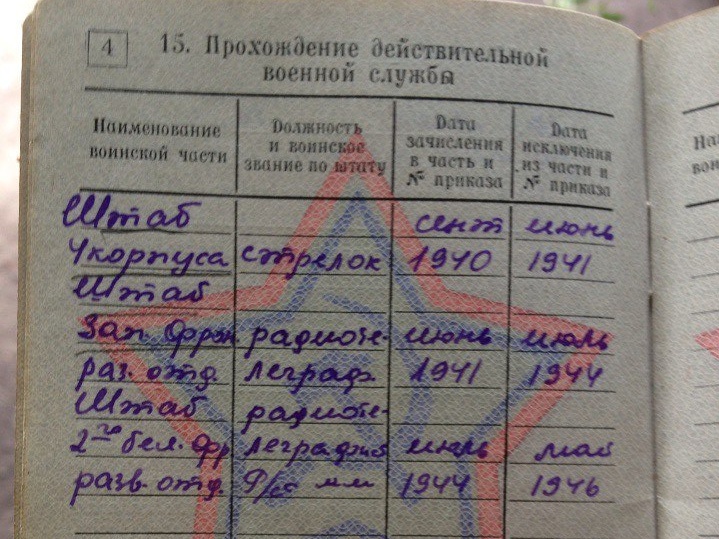 4
15. Прохождение действительной
военной службы
Наименование
воинской части
Должность
и воинское
звание по штату
Дата
зачисления
в часть и
№ приказа
Дата
исключения
из части и
№ приказа
На
вои
Штаб сент июнь
4 корпуса стрелок 1940 1941
Штаб
Зап. фрон. радиоте- июнь июль
раз. отд. леграф. 1941 1944
Штаб радиоте-
2го бел. фр леграфист июль май
разв. отд. 1944 1946